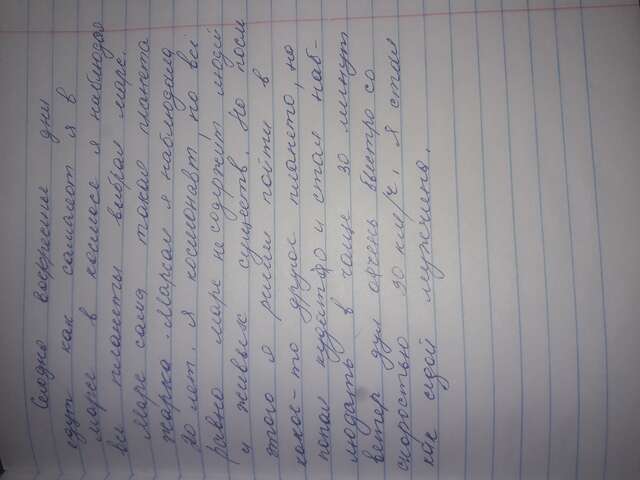 Сегодня воскресенье дни
едут как самалет я в
марсе в космосе я наблюдаю
все планеты выбрал марс.
Марс самд такая планета
жарка. Марсал я наблюдала
20 лет. Я космонавт но всё
равно марс не содержит людей
и живых существ. Но посли
этого я решил пойти в
какое-то другое плането, но
попал и стал наб-
людать в чаще 30 минут
ветер дул очень быстро со
скоростью 90 км/ч, я стал
как седой мужчина.